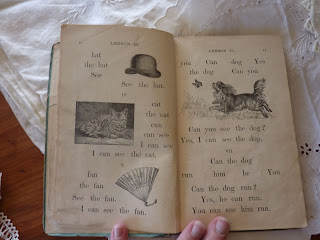 LESSON III.
hat
the hat
See
See the hat.
cat
the cat
can
can see
I can see
I can see the cat.
fan
the fan
See the fan.
I can see the fan.
LESSON IV.
you Can dog Yes
the dog Can you
Can you see the dog?
Yes, I can see the dog.
Can the dog
run him he You
Can the dog run?
Yes, he can run.
You can see him run.